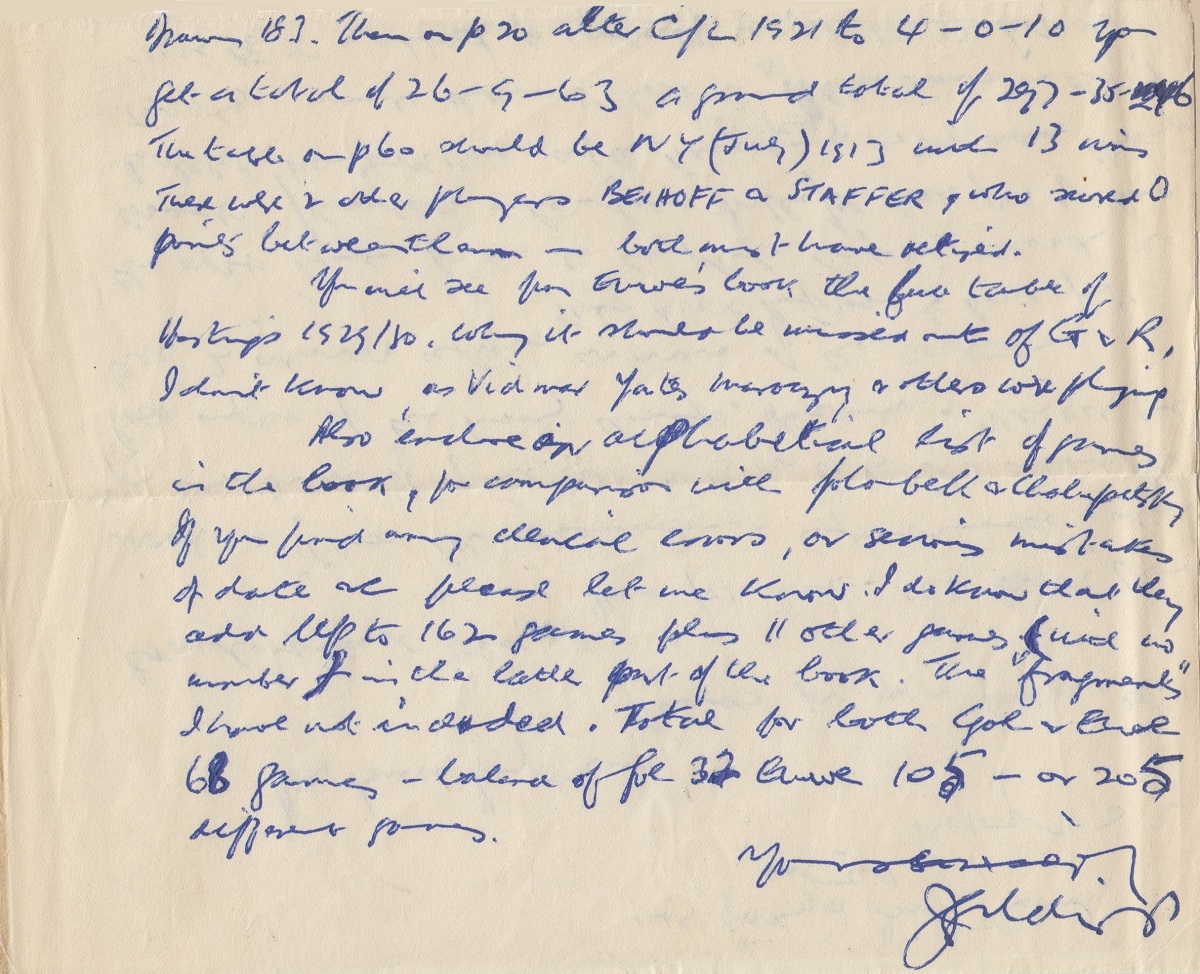 Drawn 183. Then on p 20 alter C/L 1921 to 4-0-10 you
get a total of 26-9-63 a grand total of 297-35-
The table on p60 should be NY (July) 1913 with 13 wins
There were 2 other players BEIHOFF & STAFFER, who scored 0
points between them — both must have retired.
You will see from Euwe's book the full table of
Hastings 1929/30. Why it should be missed out of G & R,
I don't know, as Vidmar Yates Maroczy & others were playing
Also enclose an alphabetical list of games
in the book, for comparison with Golombek & Chalupetzky
If you find any clerical errors, or serious mistakes
of date etc please let me know. I do know that they
add up to 162 games plus 11 other games (with no
number) in the latter part of the book. The "fragments"
I have not included. Total for both Gol & Euwe
68 games — balance of Gol 32 Euwe 105 — or 205
different games.
Yours sincerely